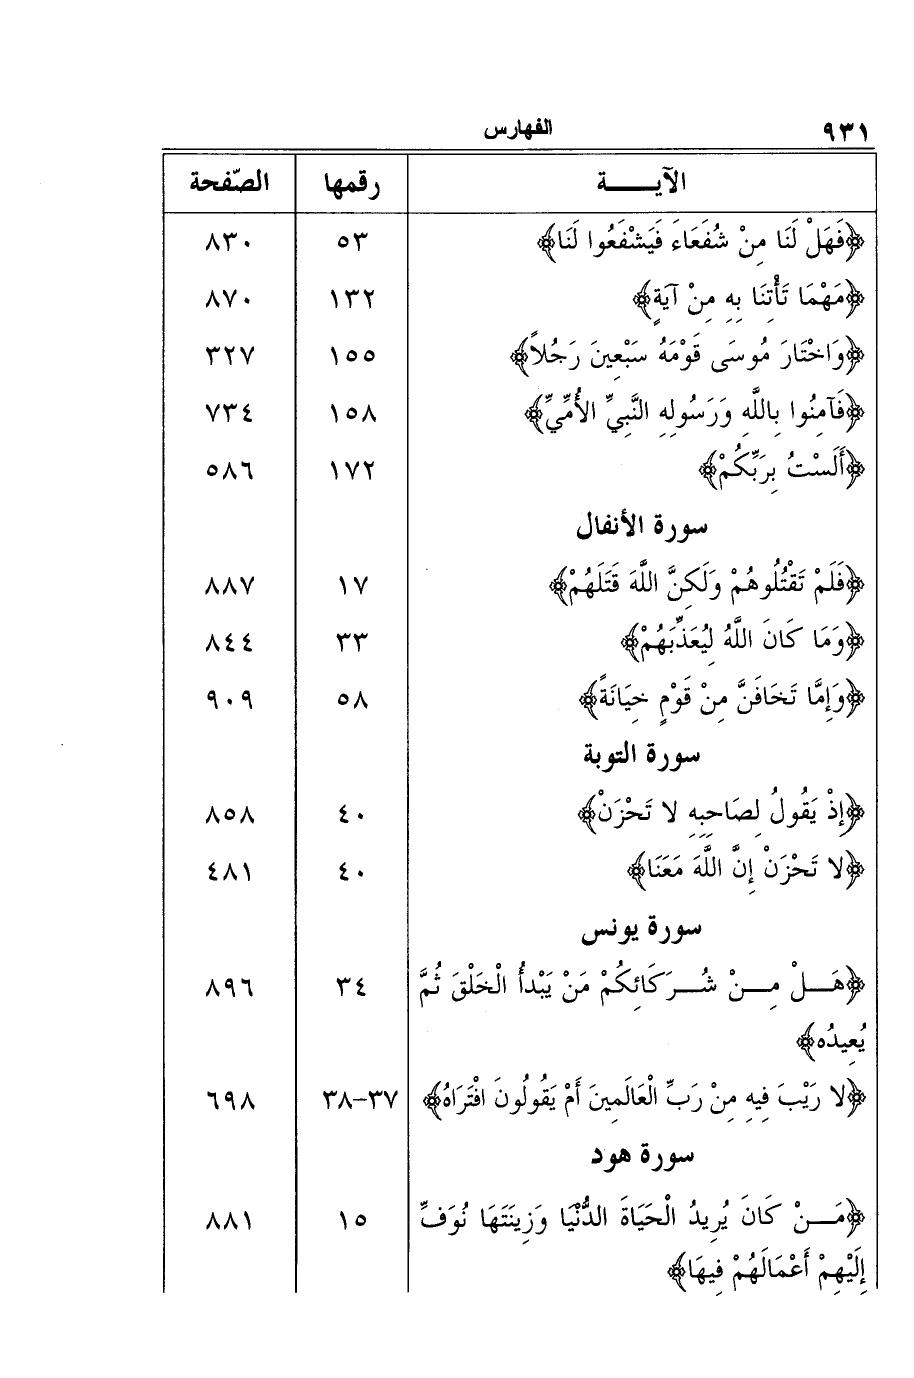 ٩٣١ الفهارس
الآيـــــة رقمها الصّفحة
﴿فَهَلْ لَنَا مِنْ شُفَعَاءَ فَيَشْفَعُوا لَنَا﴾ ٥٣ ٨٣٠
﴿مَهْمَا تَأْتِنَا بِهِ مِنْ آيَةٍ﴾ ١٣٢ ٨٧٠
﴿وَاخْتَارَ مُوسَى قَوْمَهُ سَبْعِينَ رَجُلاً﴾ ١٥٥ ٣٢٧
﴿فَآمِنُوا بِاللَّهِ وَرَسُولِهِ النَّبِيِّ الأُمِّيِّ﴾ ١٥٨ ٧٣٤
﴿أَلَسْتُ بِرَبِّكُمْ﴾ ١٧٢ ٥٨٦
سورة الأنفال
﴿فَلَمْ تَقْتُلُوهُمْ وَلَكِنَّ اللَّهَ قَتَلَهُمْ﴾ ١٧ ٨٨٧
﴿وَمَا كَانَ اللَّهُ لِيُعَذِّبَهُمْ﴾ ٣٣ ٨٤٤
﴿وَإِمَّا تَخَافَنَّ مِنْ قَوْمٍ خِيَانَةً﴾ ٥٨ ٩٠٩
سورة التوبة
﴿إِذْ يَقُولُ لِصَاحِبِهِ لا تَحْزَنْ﴾ ٤٠ ٨٥٨
﴿لا تَحْزَنْ إِنَّ اللَّهَ مَعَنَا﴾ ٤٠ ٤٨١
سورة يونس
﴿هَـــلْ مِـــنْ شُـــرَكَائِكُمْ مَنْ يَبْدأُ الْخَلْقَ ثُمَّ ٣٤ ٨٩٦
يُعِيدُه﴾
﴿لا رَيْبَ فِيهِ مِنْ رَبِّ الْعَالَمِينَ أَمْ يَقُولُونَ افْتَرَاهُ﴾ ٣٧-٣٨ ٦٩٨
سورة هود
﴿مَـــنْ كَانَ يُرِيدُ الْحَيَاةَ الدُّنْيَا وَزِينَتَهَا نُوَفِّ ١٥ ٨٨١
إِلَيْهِمْ أَعْمَالَهُمْ فِيهَا﴾